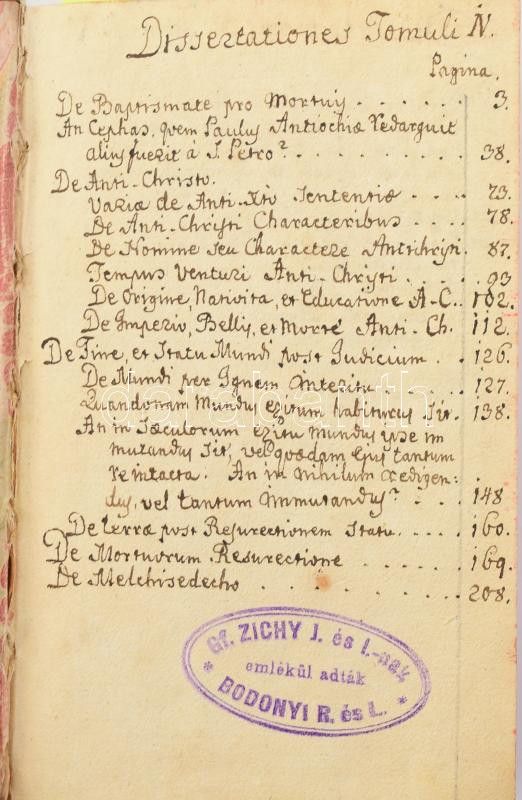 Dissertationes Tomuli IV.
Pagina.
De Baptismate pro Mortuis . . . . . . 3.
An Cephas, quem Paulus Antiochiæ redarguit
alius fuerit à S. Petro? . . . . . . . . . 38.
De Anti-Christo.
Variæ de Anti-Xto Sententiæ . . . . 73.
De Anti-Christi Characteribus . . . . 78.
De Nomine seu Charactere Antichristi. 87.
Tempus Venturi Anti-Christi . . . . . 93
De Origine, Nativita, et Educatione A-C. . 102.
De Imperio, Bellis, et Morte Anti-Ch. 112.
De Fine, et Statu Mundi post Judicium . . 126.
De Mundi per Ignem Interitu . . . . . 127.
Quandonam Mundus exitum habiturus sit. 138.
An in Sæculorum exitu Mundus ipse im
mutandus sit, vel quædam ejus tantum
reintacta. An in nihilum redigen-
dus, vel tantum immutandus? . - . . 148
De terræ post Resurectionem Statu. . . . 160.
De Mortuorum Resurectione . . . . . . 169.
De Melchisedecho . . . . . . . . . . 208.
Gf. ZICHY J. és I.-nak
emlékül adták
BODONYI R. és L.
darabanth